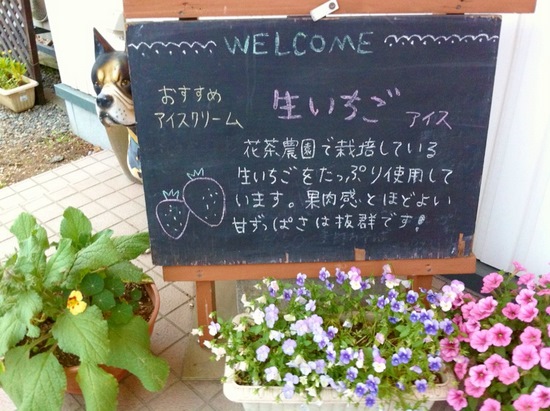 WELCOME
おすすめ
アイスクリーム
生いちご
アイス
花茶農園で栽培している
生いちごをたっぷり使用して
います。果肉感とほどよい
甘ずっぱさは抜群です!